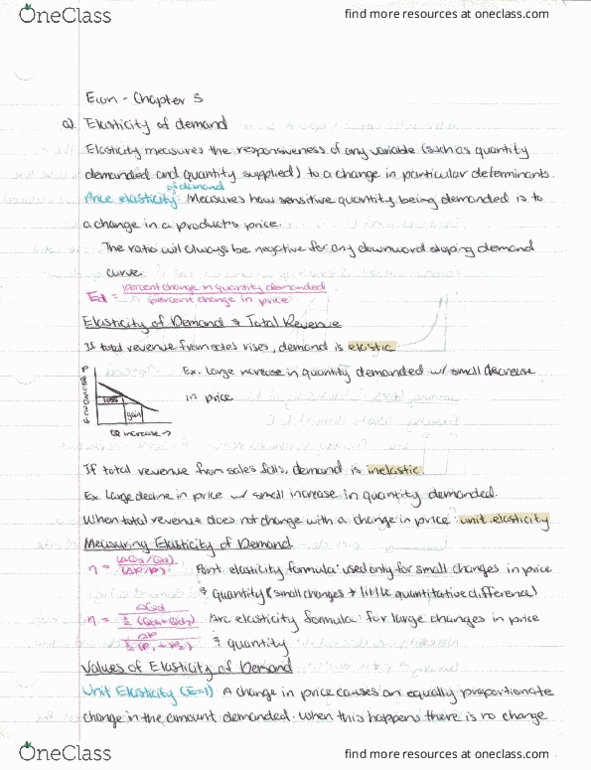 OneClass
find more resources at oneclass.com
Econ - Chapter 3
a) Elasticity of demand
Elasticity measures the responsiveness of any variable (such as quantity
demanded and quantity supplied) to a change in particular determinants.
of demand
Price elasticity: Measures how sensitive quantity being demanded is to
a change in a product's price.
The ratio will always be negative for any downward sloping demand
curve
Ed = percent change in quantity demanded
percent change in price
Elasticity of Demand & Total Revenue
If total revenue from sales rises, demand is elastic
P
Ex. large increase in quantity demanded w/ small decrease
loss
in price
gain
Q increase →
If total revenue from sales falls, demand is inelastic.
Ex. Large decline in price w/ small increase in quantity demanded.
When total revenue does not change with a change in price: unit elasticity
Measuring Elasticity of Demand
η = (ΔQd/Qd)
(ΔP/P)
Point elasticity formula: used only for small changes in price
& quantity (small changes → little quantitative difference)
η = ΔQd
½ (Qd1 + Qd2)
Arc elasticity formula: for large changes in price
ΔP
½ (P1 + P2)
& quantity
Values of Elasticity of Demand
Unit Elasticity (E=1) A change in price causes an equally proportionate
change in the amount demanded. When this happens there is no change
OneClass
find more resources at oneclass.com